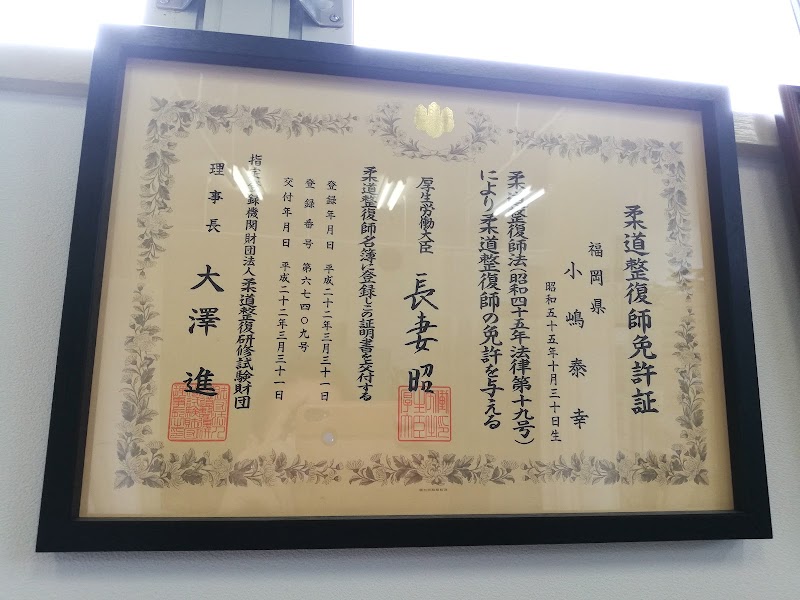 柔道整復師免許証
福岡県
小嶋泰幸
昭和五十五年十月三十日生
柔道整復師法(昭和四十五年法律第十九号)
により柔道整復師の免許を与える
厚生労働大臣 長妻昭
柔道整復師名簿に登録しこの証明書を交付する
登録年月日 平成二十二年三月三十一日
登録番号 第六七四〇九号
交付年月日 平成二十二年三月三十一日
指定登録機関財団法人柔道整復研修試験財団
理事長 大澤進